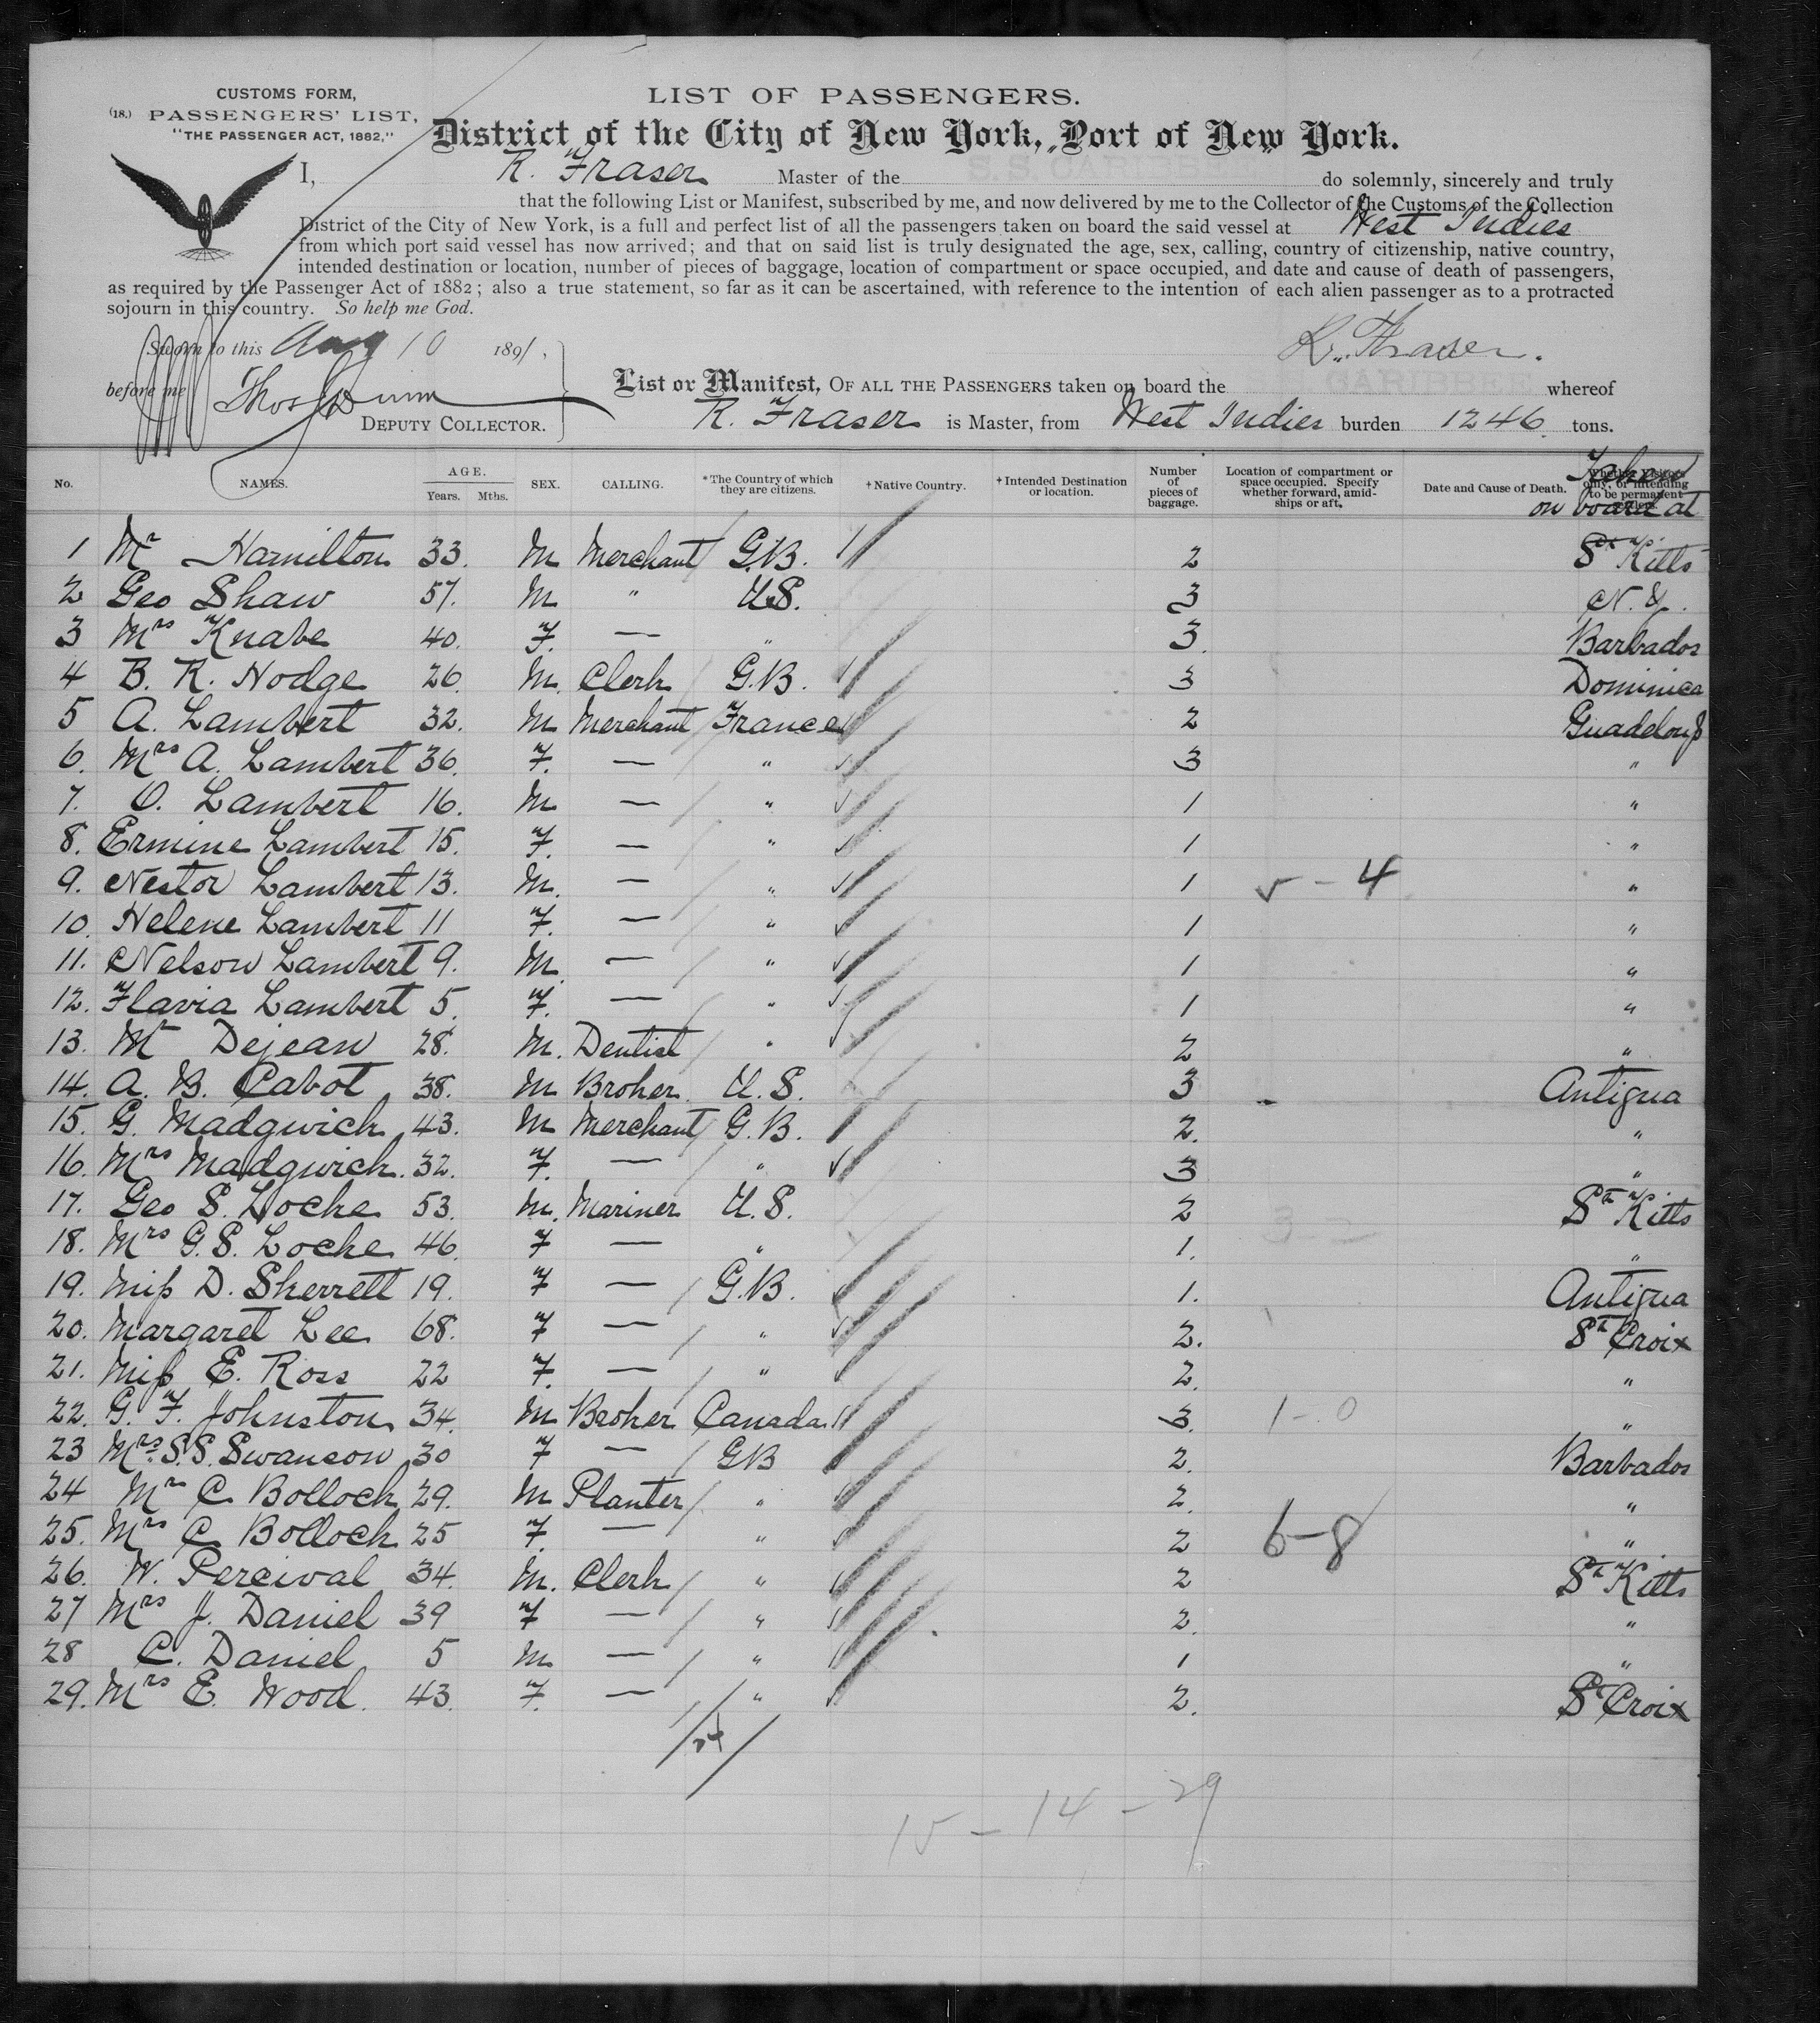 CUSTOMS FORM,
(18.) PASSENGERS' LIST,
"THE PASSENGER ACT, 1882,"
LIST OF PASSENGERS.
District of the City of New York, Port of New York.
I, R. Fraser Master of the do solemnly, sincerely and truly
that the following List or Manifest, subscribed by me, and now delivered by me to the Collector of the Customs of the Collection
District of the City of New York, is a full and perfect list of all the passengers taken on board the said vessel at West Indies
from which port said vessel has now arrived; and that on said list is truly designated the age, sex, calling, country of citizenship, native country,
intended destination or location, number of pieces of baggage, location of compartment or space occupied, and date and cause of death of passengers,
as required by the Passenger Act of 1882; also a true statement, so far as it can be ascertained, with reference to the intention of each alien passenger as to a protracted
sojourn in this country. So help me God.
Sworn to this Aug 10 1891,
R. Fraser.
before me Thos Dunn
DEPUTY COLLECTOR.
List or Manifest, OF ALL THE PASSENGERS taken on board the S.S. CARIBBEE whereof
R. Fraser is Master, from West Indies burden 1246 tons.
No. NAMES. AGE. Years. Mths. SEX. CALLING. *The Country of which they are citizens. †Native Country. †Intended Destination or location. Number of pieces of baggage. Location of compartment or space occupied. Specify whether forward, amidships or aft. Date and Cause of Death. Taken on board at
1 Mr Hamilton 33. M Merchant G.B. 2 St Kitts
2 Geo Shaw 57. M " U.S. 3 N.Y.
3 Mrs Knabe 40. F. — " 3. Barbados
4 B. R. Hodge 26. M. Clerk G.B. 3 Dominica
5 A. Lambert 32. M Merchant France 2 Guadeloup
6. Mrs A. Lambert 36. F. — " 3 "
7. O. Lambert 16. M — " 1 "
8. Ermine Lambert 15. F. — " 1 "
9. Nestor Lambert 13. M. — " 1 "
10. Helene Lambert 11 F. — " 1 "
11. Nelson Lambert 9. M. — " 1 "
12. Flavia Lambert 5. F. — " 1 "
13. Mr Dejean 28. M. Dentist " 2 "
14. A. B. Cabot 38. M Broker U.S. 3 Antigua
15. G. Madgwick 43. M Merchant G.B. 2. "
16. Mrs Madgwick. 32. F. — " 3 "
17. Geo S. Locke 53. M. Mariner U.S. 2 St Kitts
18. Mrs G.S. Locke 46. F — " 1. "
19. Miss D. Sherrett 19. F — G.B. 1. Antigua
20. Margaret Lee 68. F — " 2. St Croix
21. Miss E. Ross 22 F. — " 2. "
22. G. F. Johnston 34. M Broker Canada 3. 1-0 "
23 Mrs S.S. Swanson 30 F — GB 2. Barbados
24 Mr C. Bollock 29. M Planter " 2. "
25. Mrs C. Bollock 25 F. — " 2 6-8 "
26. W. Percival 34. M. Clerk " 2 St Kitts
27 Mrs J. Daniel 39 F — " 2. "
28 C. Daniel 5 M — " 1 "
29. Mrs E. Wood. 43. F. — " 2. St Croix
15 - 14 - 29